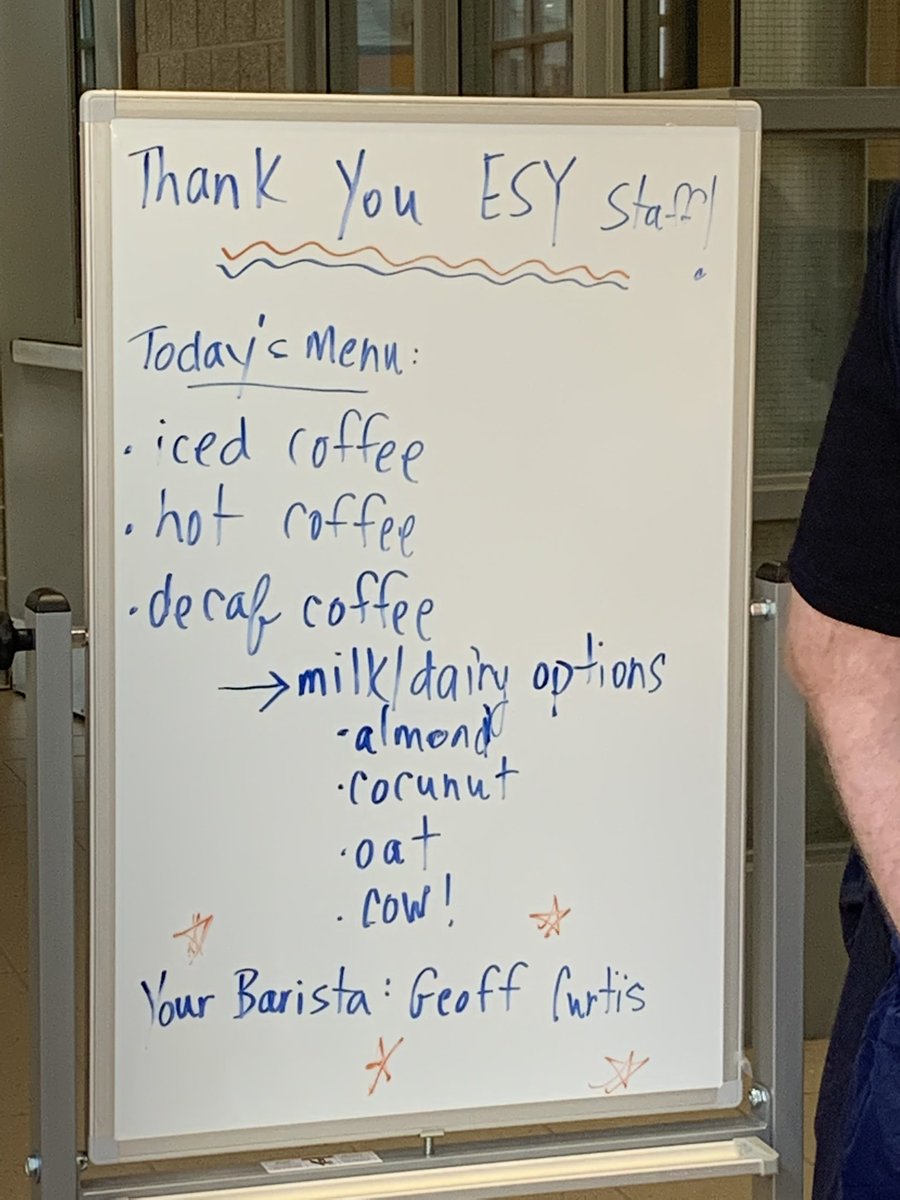 Thank You ESY Staff!
Today's Menu:
· iced coffee
· hot coffee
· decaf coffee
→ milk/dairy options
· almond
· cocunut
· oat
· cow!
Your Barista: Geoff Curtis